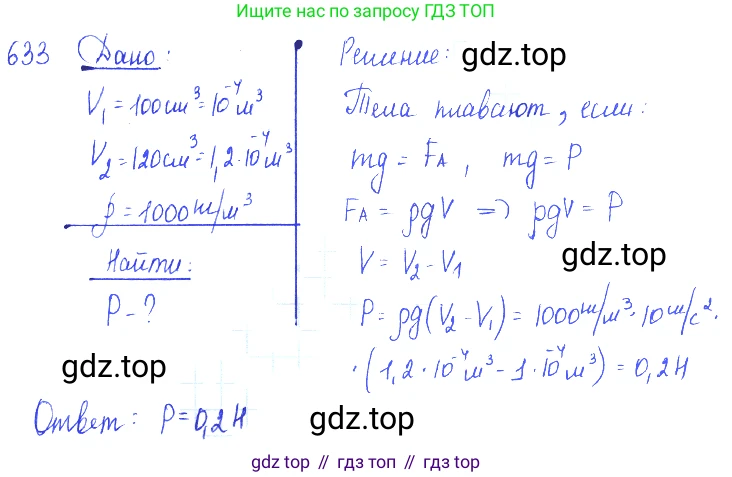 Ищите нас по запросу ГДЗ ТОП
633 Дано:
V₁ = 100 см³ = 10⁻⁴ м³
V₂ = 120 см³ = 1,2 · 10⁻⁴ м³
ρ = 1000 кг/м³
Найти:
P - ?
Решение:
gdz.top
Тела плавают, если:
mg = F_A, mg = P
F_A = ρgV => ρgV = P
V = V₂ - V₁
gdz.top
P = ρg(V₂ - V₁) = 1000 кг/м³ · 10 м/с² ·
· (1,2 · 10⁻⁴ м³ - 1 · 10⁻⁴ м³) = 0,2 Н
gdz.top
Ответ: P = 0,2 Н
gdz.top
gdz top // гдз топ // gdz top